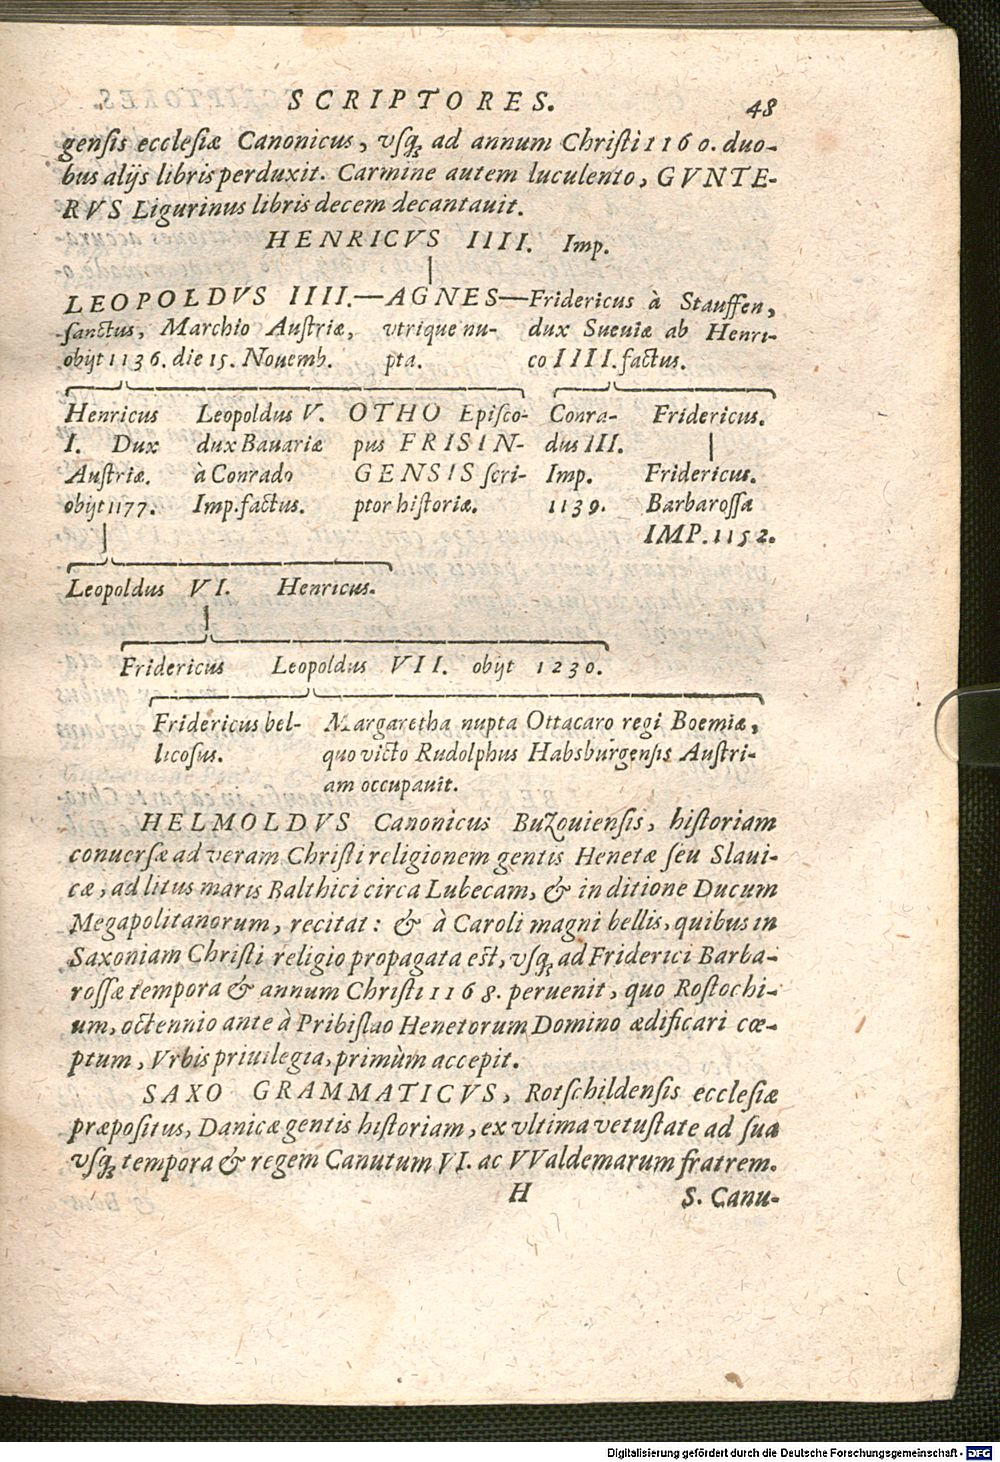 SCRIPTORES. 48
gensis ecclesiæ Canonicus, vsq; ad annum Christi 1160. duo-
bus alijs libris perduxit. Carmine autem luculento, GVNTE-
RVS Ligurinus libris decem decantauit.
HENRICVS IIII. Imp.
LEOPOLDVS IIII.—AGNES—Fridericus à Stauffen,
sanctus, Marchio Austriæ, vtrique nu- dux Sueuiæ ab Henri-
obijt 1136. die 15. Nouemb. pta. co IIII. factus.
Henricus Leopoldus V. OTHO Episco- Conra- Fridericus.
I. Dux dux Bauariæ pus FRISIN- dus III.
Austriæ. à Conrado GENSIS scri- Imp. Fridericus.
obijt 1177. Imp. factus. ptor historiæ. 1139. Barbarossa
IMP. 1152.
Leopoldus VI. Henricus.
Fridericus Leopoldus VII. obijt 1230.
Fridericus bel- Margaretha nupta Ottacaro regi Boemiæ,
licosus. quo victo Rudolphus Habsburgensis Austri-
am occupauit.
HELMOLDVS Canonicus Buzouiensis, historiam
conuersæ ad veram Christi religionem gentis Henetæ seu Slaui-
cæ, ad litus maris Balthici circa Lubecam, & in ditione Ducum
Megapolitanorum, recitat: & à Caroli magni bellis, quibus in
Saxoniam Christi religio propagata est, vsq; ad Friderici Barba-
rossæ tempora & annum Christi 1168. peruenit, quo Rostochi-
um, octennio ante à Pribislao Henetorum Domino ædificari cœ-
ptum, Vrbis priuilegia, primùm accepit.
SAXO GRAMMATICVS, Rotschildensis ecclesiæ
præpositus, Danicæ gentis historiam, ex vltima vetustate ad sua
vsq; tempora & regem Canutum VI. ac VValdemarum fratrem.
H S. Canu-
Digitalisierung gefördert durch die Deutsche Forschungsgemeinschaft - DFG